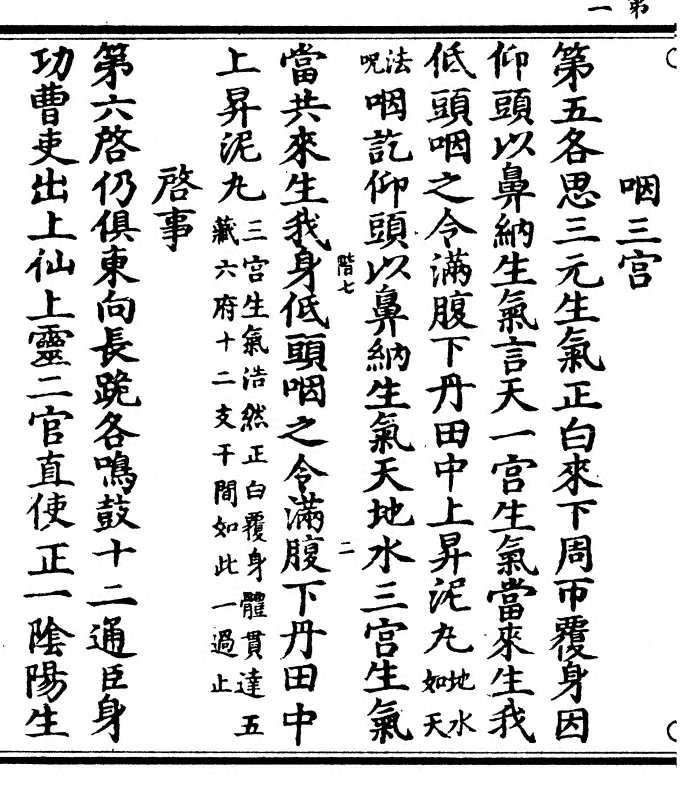 第一
咽三宮
第五各思三元生氣正白來下周帀覆身因
仰頭以鼻納生氣言天一宮生氣當來生我
低頭咽之令滿腹下丹田中上昇泥丸地水如天
法呪咽訖仰頭以鼻納生氣天地水三宮生氣
階七 二
當共來生我身低頭咽之令滿腹下丹田中
上昇泥丸三宮生氣浩然正白覆身體貫達五藏六府十二支干間如此一過止
啓事
第六啓仍俱東向長跪各鳴鼓十二通臣身
功曹吏出上仙上靈二官直使正一陰陽生